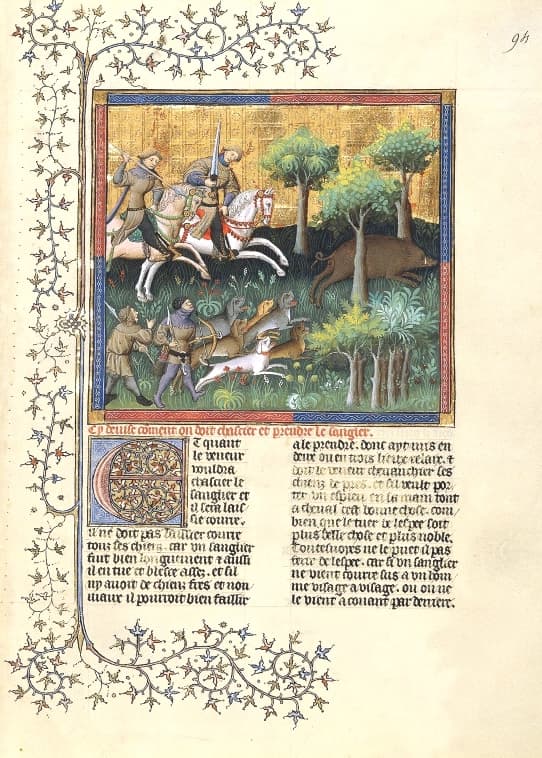 94
Cy devise coment on doit chascier et prendre le sanglier.
Et quant
le veneur
vouldra
chascier le
sanglier et
il sera lais
se courre.
il ne doit pas laissier courre
touz ses chiens. car un sanglier
fuit bien longuement et aussi
il en tue et blesce assez. et sil
ny avoit de chiens frés et nou
viaux il pourroit bien faillir
a le prendre. donc ayt mis en
deux ou en trois lieux relaix. et
doit le veneur chevauchier ses
chiens de pres. et sil veult por
ter un espieu en sa main tout
a cheval cest bonne chose. com
bien que le tuer de lespee soit
plus belle chose et plus noble.
Toutesvoyes ne le puet il pas
ferir de lespee. car se un sanglier
ne vient courre sus a un hom
me visage a visage. ou on ne
le vient aconant par derriere.